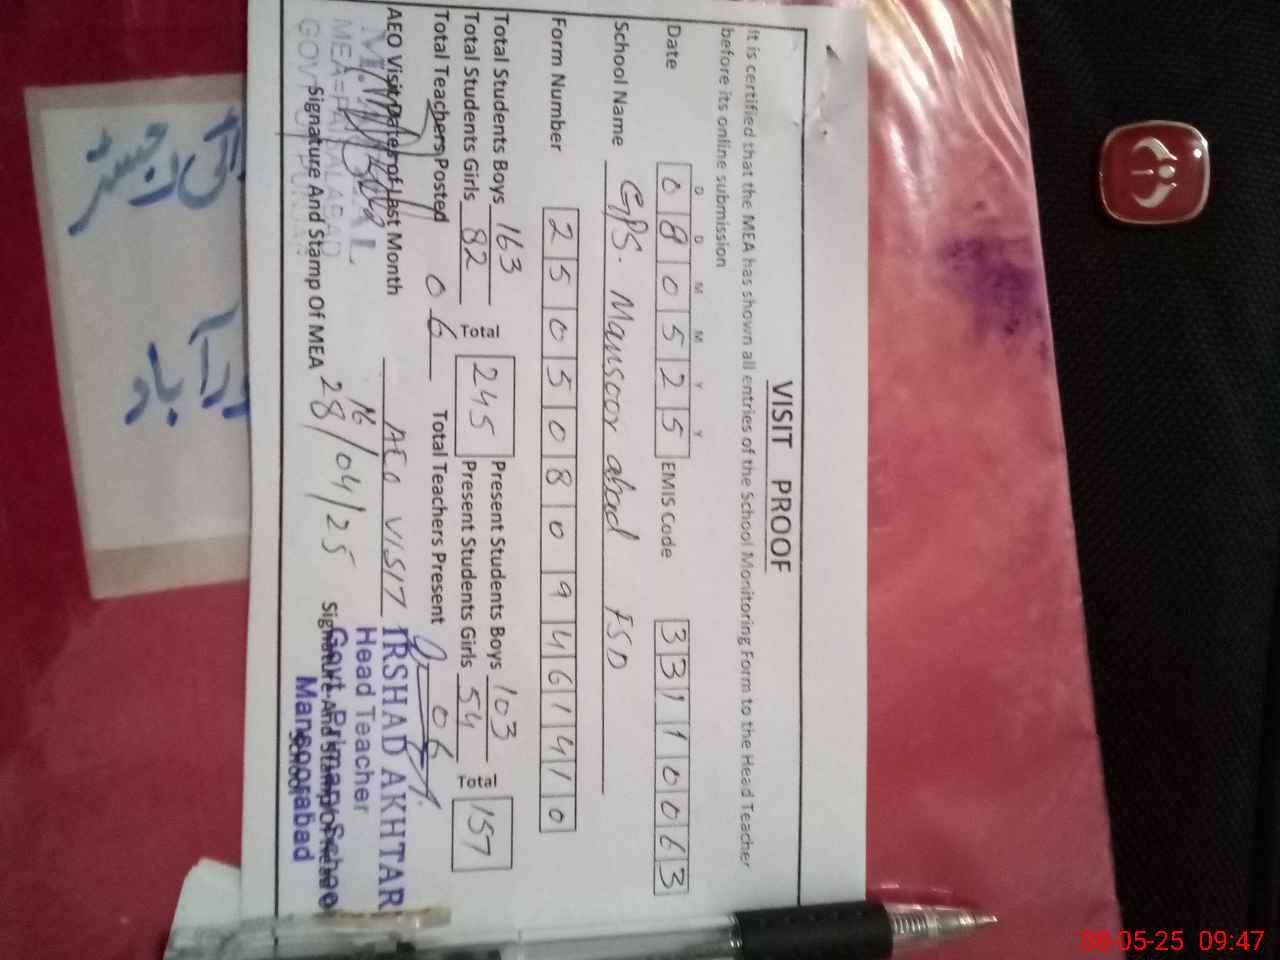 VISIT PROOF
It is certified that the MEA has shown all entries of the School Monitoring Form to the Head Teacher
before its online submission
D D M M Y Y
Date 0 8 0 5 2 5 EMIS Code 3 3 1 1 0 0 6 3
School Name GPS. Mansoor abad FSD
Form Number 2 5 0 5 0 8 0 9 4 6 1 4 1 0
Total Students Boys 163 Present Students Boys 103
Total Students Girls 82 Total 245 Present Students Girls 54 Total 157
Total Teachers Posted 06 Total Teachers Present 06
AEO Visit Dates of Last Month AEO VISIT
16
28/04/25
Signature And Stamp Of MEA
IRSHAD AKHTAR
Head Teacher
Govt. Primary School
Mansoorabad
رجسٹر
آباد
08-05-25 09:47